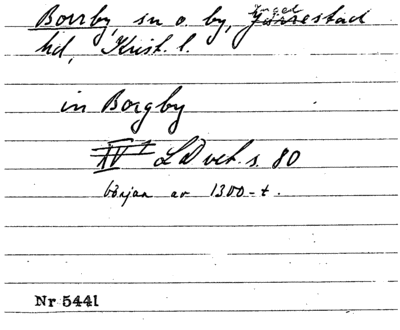 Borrby, sn o. by, Ingelstad
hd, Krist. l.
in Borgby
LDvet. s. 80
början av 1300-t.
Nr 5441